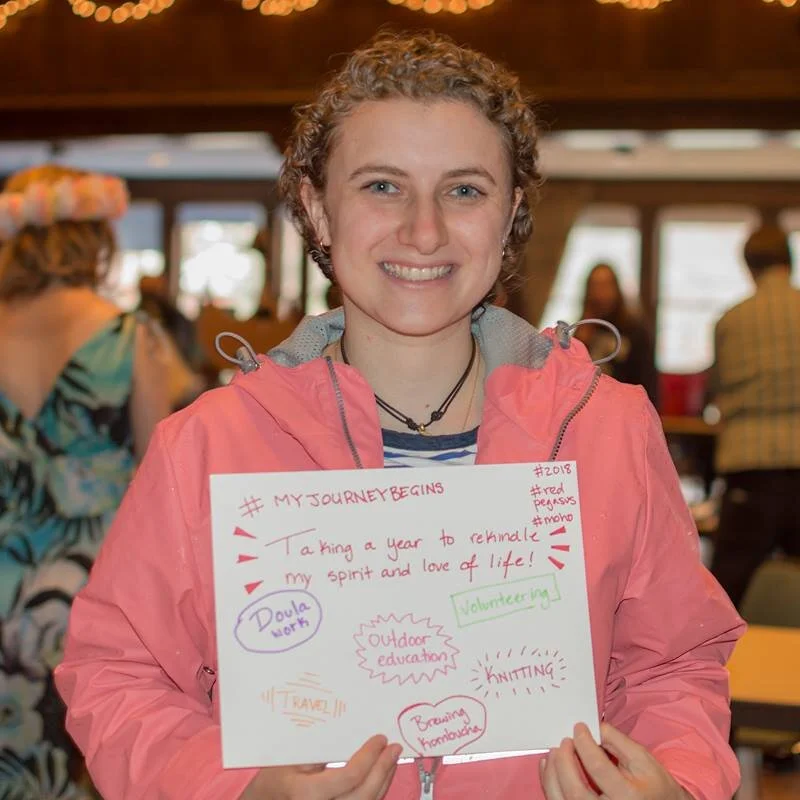 # MYJOURNEYBEGINS
#2018
#red
pegasus
#moho
Taking a year to rekindle
my spirit and love of life!
Doula
work
Volunteering
Outdoor
education
KNITTING
TRAVEL
Brewing
Kombucha